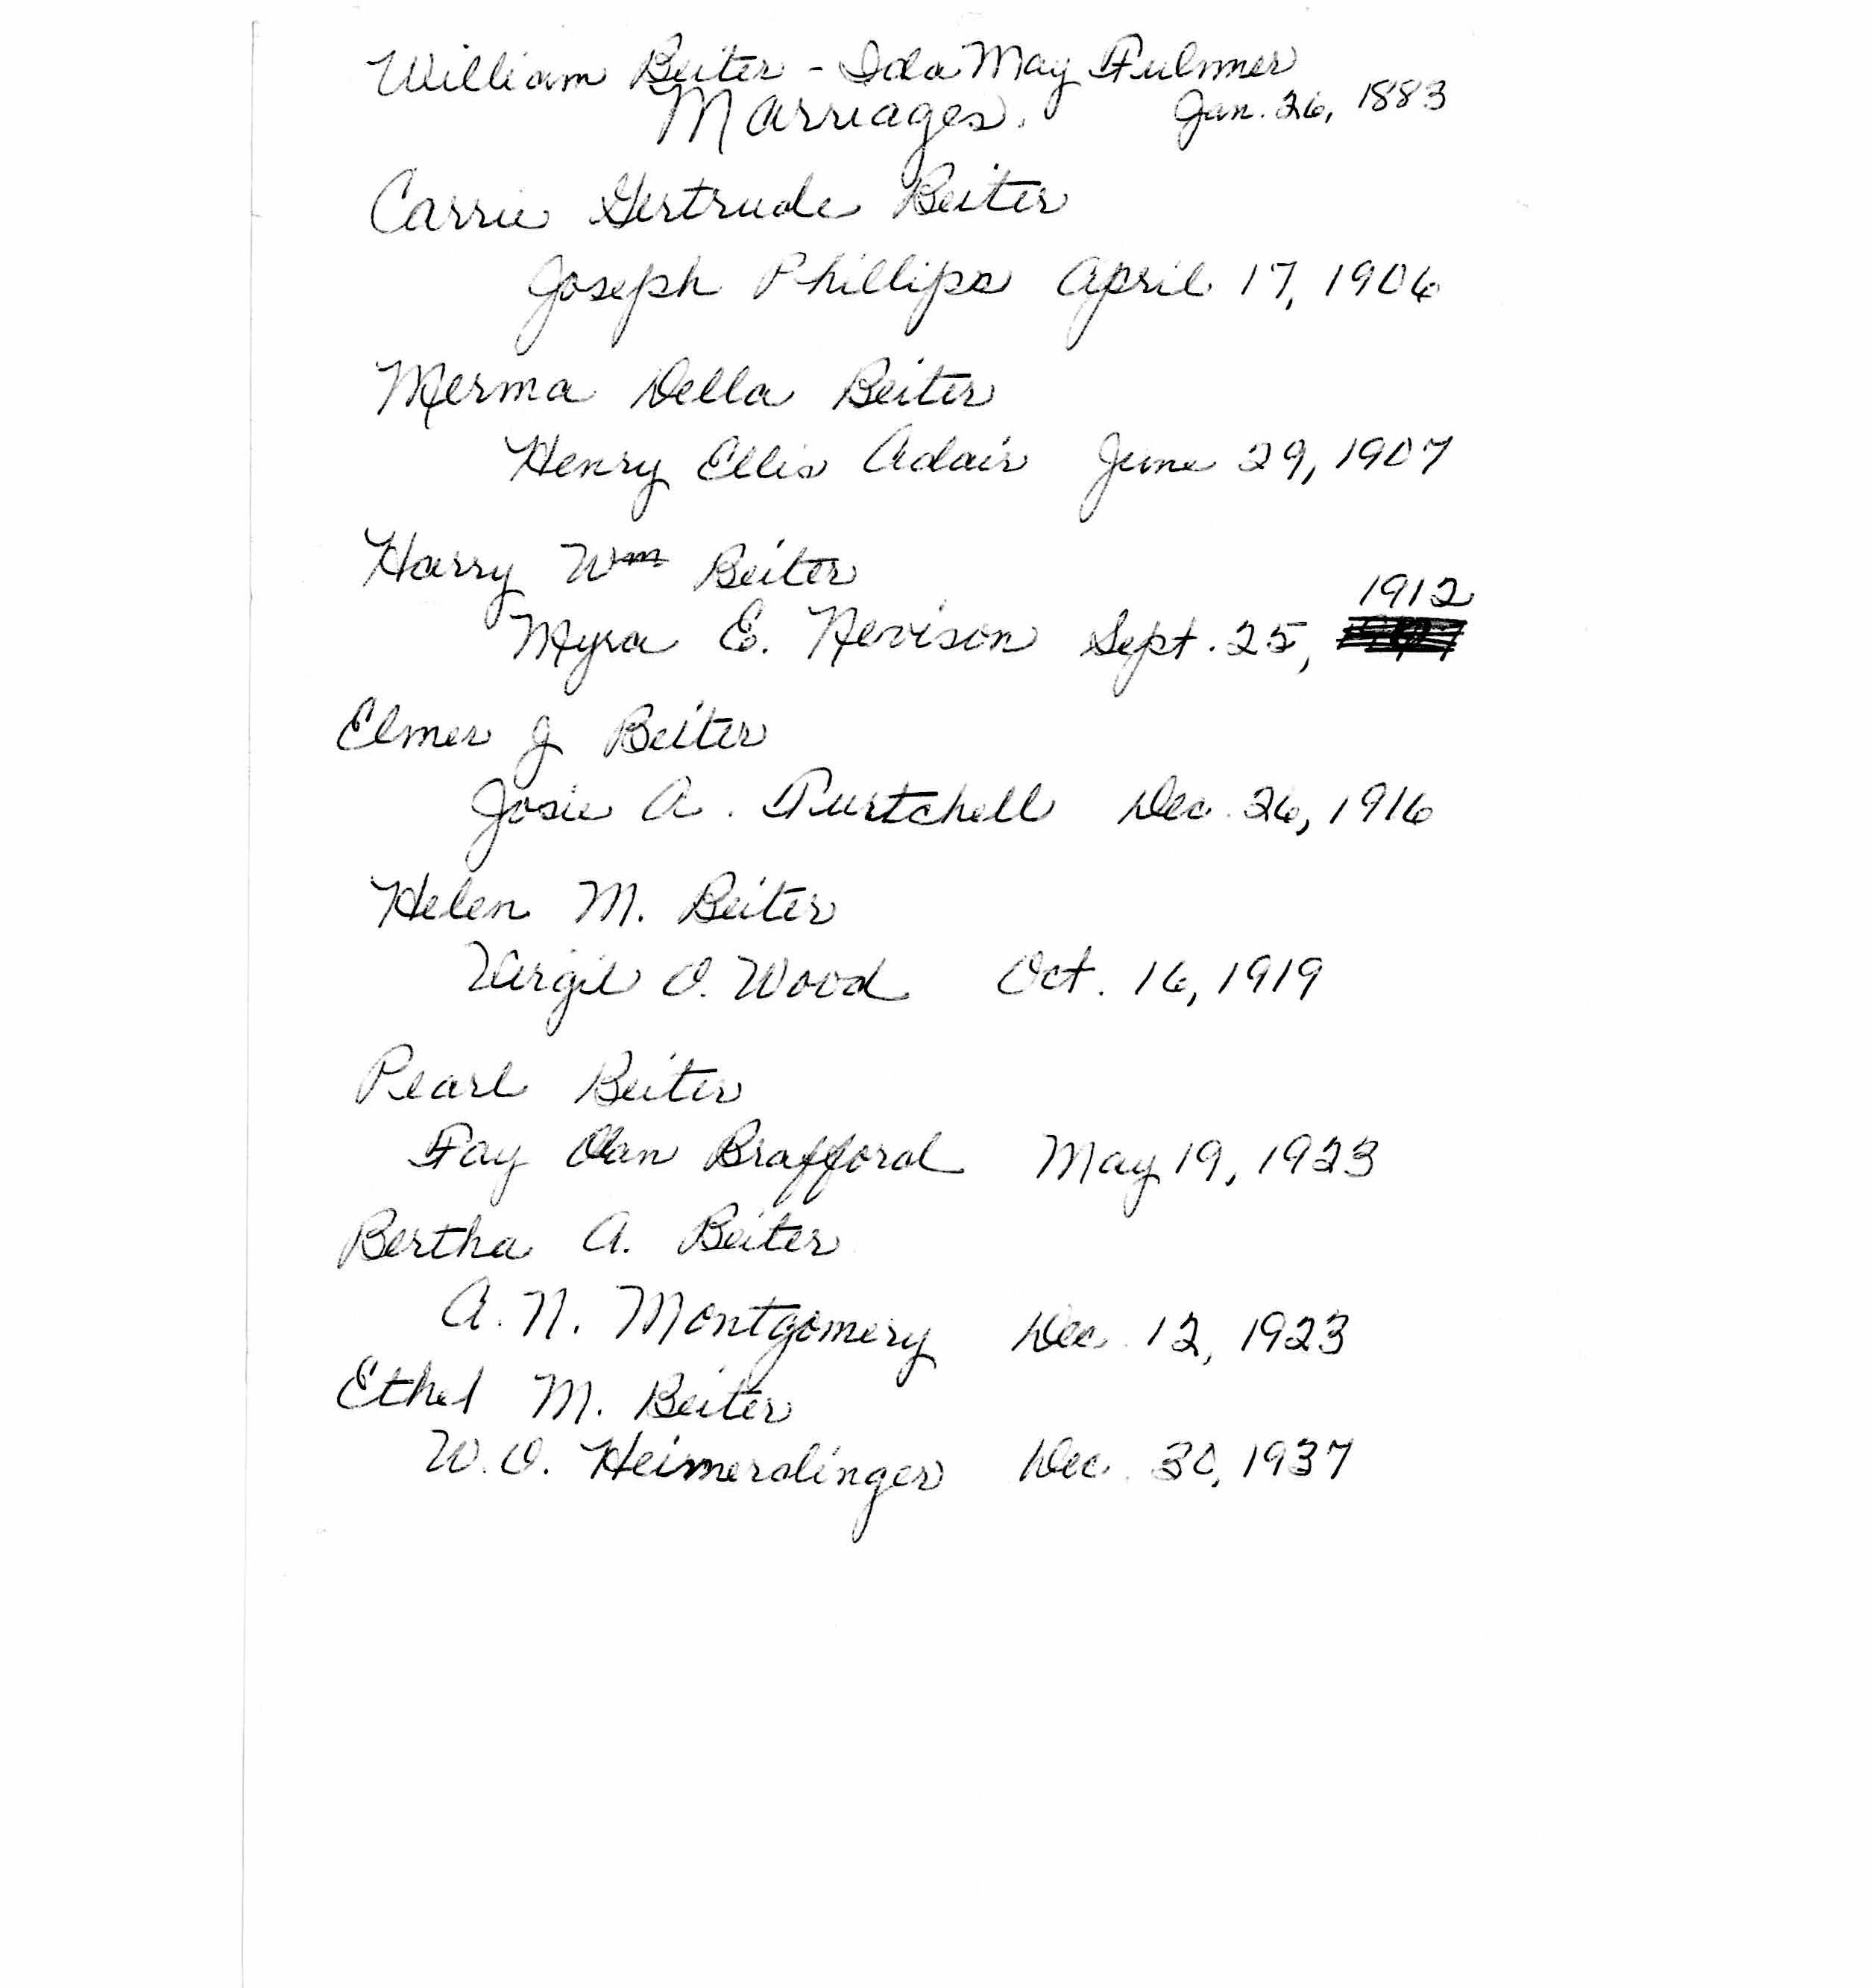 William Beiter - Ida May Fulmer
Marriages. Jan. 26, 1883
Carrie Gertrude Beiter
Joseph Phillips April 17, 1906
Merma Della Beiter
Henry Ellis Adair June 29, 1907
Harry Wm Beiter
1912
Myra E. Nevison Sept. 25,
Elmer J Beiter
Josie A. Turtchell Dec. 26, 1916
Helen M. Beiter
Virgil O. Wood Oct. 16, 1919
Pearl Beiter
Fay Olan Brafford May 19, 1923
Bertha A. Beiter
A. N. Montgomery Dec. 12, 1923
Ethel M. Beiter
W. O. Heimerdinger Dec. 30, 1937